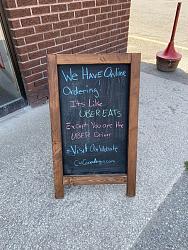 We Have Online
Ordering
It's Like
UBER EATS
Except You are the
UBER Driver
Visit Our Website